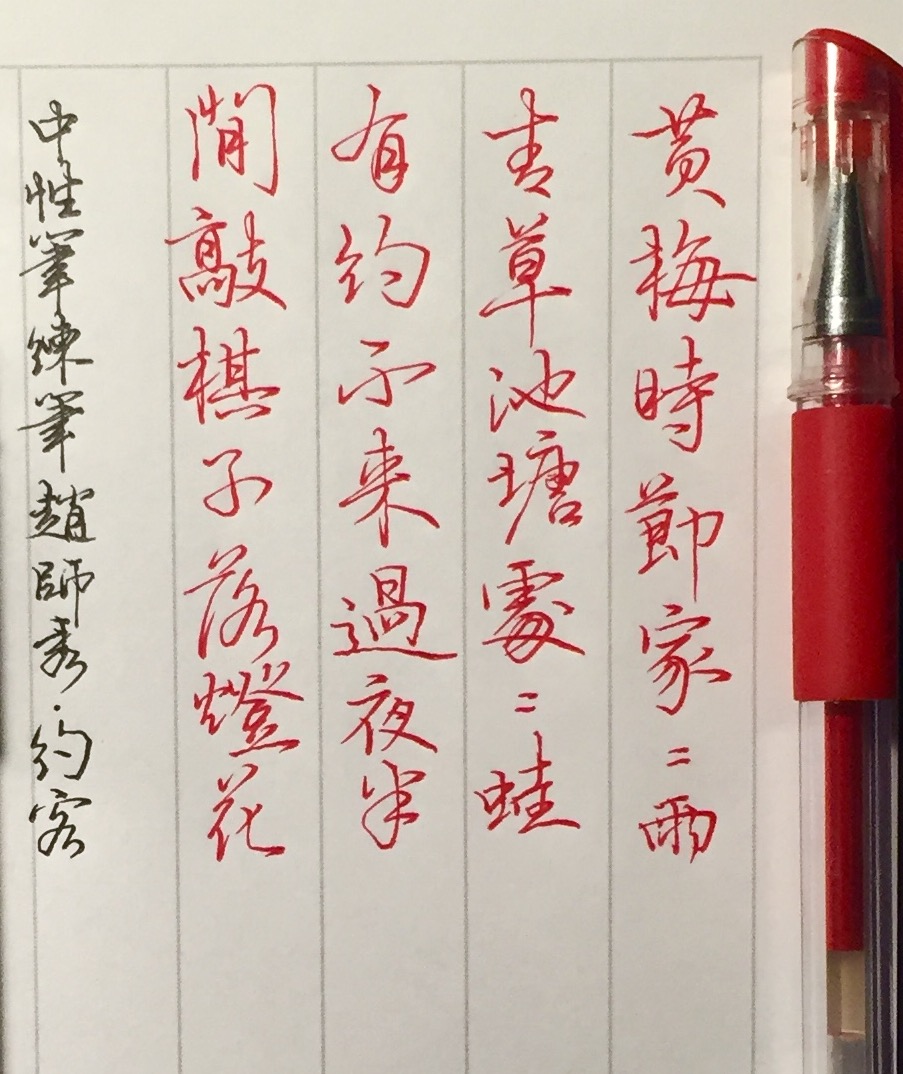 黃梅時節家〻雨
青草池塘處〻蛙
有約不来過夜半
閒敲棋子落燈花
中性筆練筆趙師秀·約客